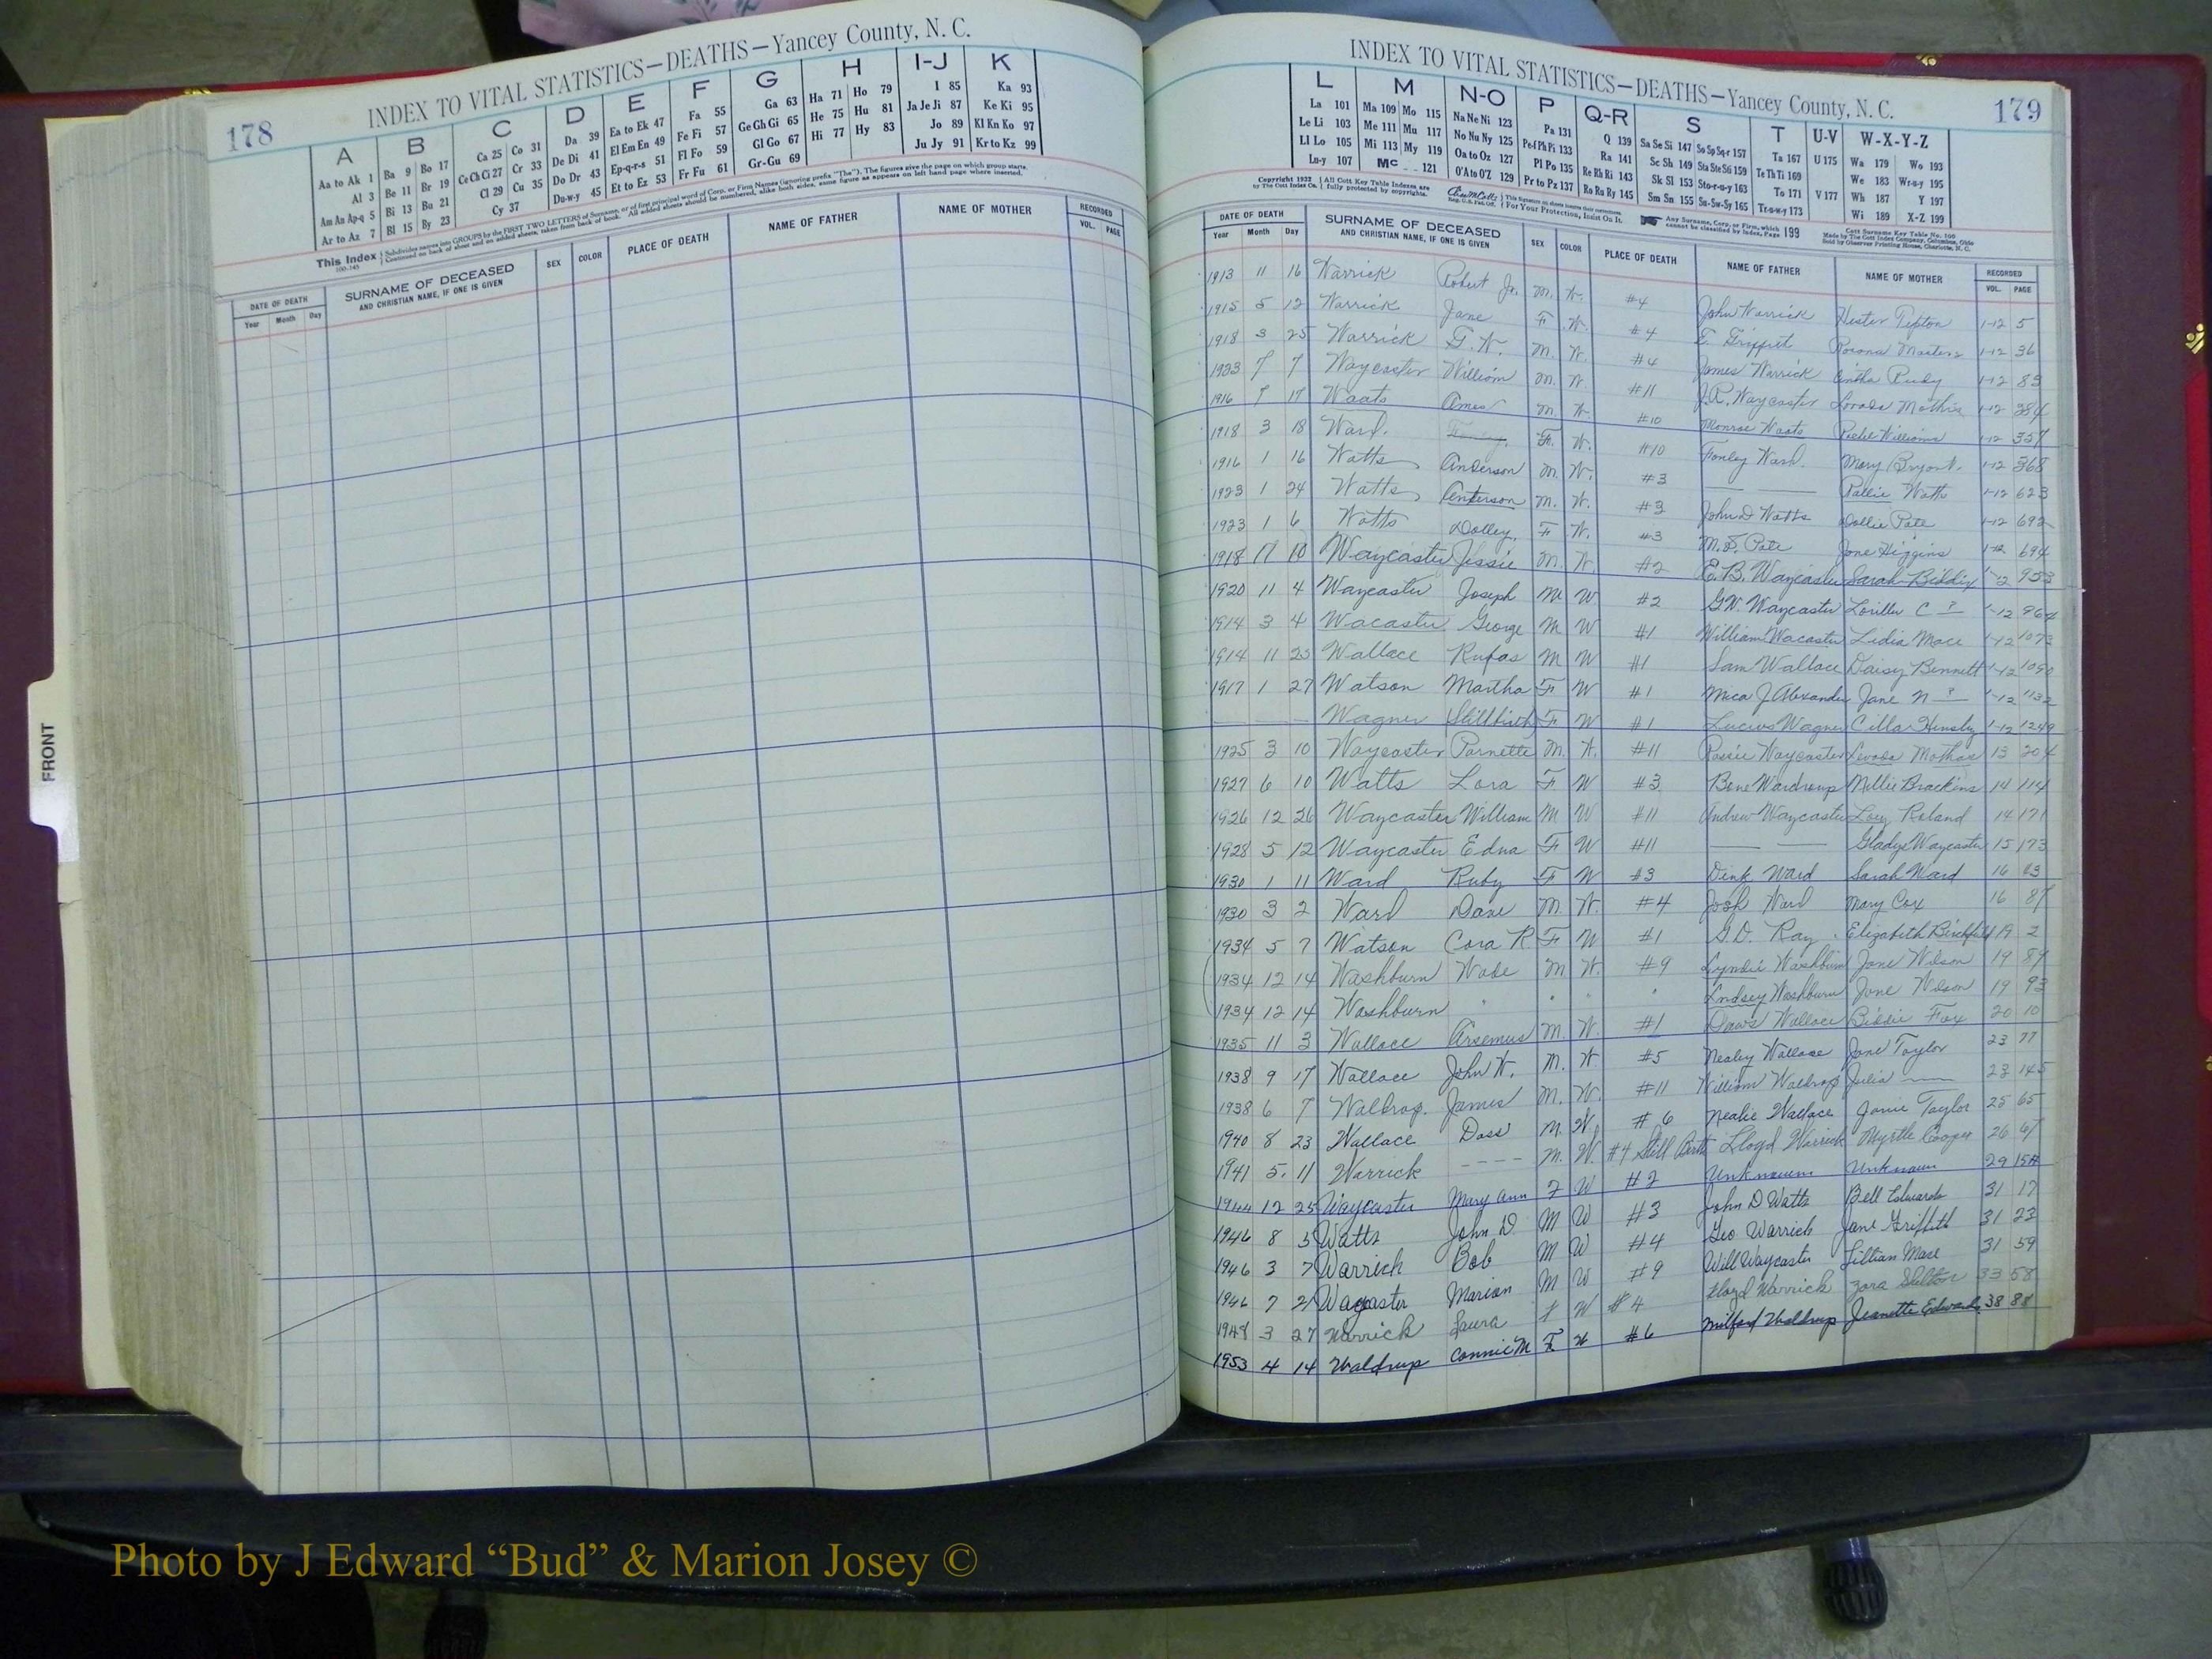 178
INDEX TO VITAL STATISTICS—DEATHS—Yancey County, N. C.
A B C D E F G H I-J K
Aa to Ak 1 Ba 9 Bo 17 Ca 25 Co 31 Da 39 Ea to Ek 47 Fa 55 Ga 63 Ha 71 Ho 79 I 85 Ka 93
Al 3 Be 11 Br 19 Ce Ch Ci 27 Cr 33 De Di 41 El Em En 49 Fe Fi 57 Ge Gh Gi 65 He 75 Hu 81 Ja Je Ji 87 Ke Ki 95
Am An Ap-q 5 Bi 13 Bu 21 Cl 29 Cu 35 Do Dr 43 Ep-q-r-s 51 Fl Fo 59 Gl Go 67 Hi 77 Hy 83 Jo 89 Kl Kn Ko 97
Ar to Az 7 Bl 15 By 23 Cy 37 Du-w-y 45 Et to Ez 53 Fr Fu 61 Gr-Gu 69 Ju Jy 91 Kr to Kz 99
DATE OF DEATH SURNAME OF DECEASED SEX COLOR PLACE OF DEATH NAME OF FATHER NAME OF MOTHER RECORDED
Year Month Day AND CHRISTIAN NAME, IF ONE IS GIVEN VOL. PAGE
FRONT
INDEX TO VITAL STATISTICS—DEATHS—Yancey County, N. C.
179
L M N-O P Q-R S T U-V W-X-Y-Z
La 101 Ma 109 Mo 115 Na Ne Ni 123 Pa 131 Q 139 Sa Se Si 147 So Sp Sq-r 157 Ta 167 U 175 Wa 179 Wo 193
Le Li 103 Me 111 Mu 117 No Nu Ny 125 Pe-f Ph Pi 133 Ra 141 Sc Sh 149 Sta Ste Sti 159 Te Th Ti 169 We 183 Wr-u-y 195
Ll Lo 105 Mi 113 My 119 Oa to Oz 127 Pl Po 135 Re Rh Ri 143 Sk Sl 153 Sto-r-u-y 163 To 171 V 177 Wh 187 Y 197
Lu-y 107 Mc 121 O'A to O'Z 129 Pr to Pz 137 Ro Ru Ry 145 Sm Sn 155 Su-Sw-Sy 165 Tr-u-w-y 173 Wi 189 X-Z 199
DATE OF DEATH SURNAME OF DECEASED SEX COLOR PLACE OF DEATH NAME OF FATHER NAME OF MOTHER RECORDED
Year Month Day AND CHRISTIAN NAME, IF ONE IS GIVEN VOL. PAGE
1913 11 16 Warrick Robert Jr. M. W. #4 John Warrick Hester Tipton 1-12 5
1915 5 12 Warrick Jane F W. #4 Griffit Masters 1-12 36
1918 3 25 Warrick G. W. M. W. #4 James Warrick 1-12 83
1923 7 7 Waycaster William M. W. #11 J.R. Waycaster Mathis 1-12 284
1916 7 17 Waats Amos M. W. #10 Monroe Waats Williams 1-12 357
1918 3 18 Ward. F. W. #10 Fonley Ward. Mary Bryant. 1-12 368
1916 1 16 Watts Anderson M. W. #3 —— —— Watts 1-12 623
1923 1 24 Watts Anterson M. W. #3 John D Watts Dollie Pate 1-12 692
1923 1 6 Watts Dolley. F W. #3 M.S. Pate Jane Higgins 1-12 694
1918 10 Waycaster Jessie M. W. #2 E.B. Waycaster Sarah Biddix 1-12 953
1920 11 4 Waycaster Joseph M W #2 G.W. Waycaster C ? — 1-12 964
1914 3 4 Wacaster George M W #1 William Wacaster Lidia Mace 1-12 1073
1914 11 23 Wallace Rufas M W #1 Sam Wallace Daisy Bennett 1-12 1090
1917 1 27 Watson Martha F W #1 Mica J Alexander Jane N ? — 1-12 1132
—— —— Wagner Stillbirth F W #1 Lucius Wagner Cillar Hensley 1-12 1249
1925 3 10 Waycaster Parnette M. W. #11 Waycaster 13 204
1927 6 10 Watts Lora F W #3 Bone Wardroup Millie Brackins 14 114
1926 12 26 Waycaster William M W #11 Andrew Waycaster Roland 14 171
1928 5 12 Waycaster Edna F W #11 —— —— Gladys Waycaster 15 173
1930 1 11 Ward Ruby F W #3 Dink Ward Sarah Ward 16 23
1930 3 2 Ward Dave M. W. #4 Josh Ward Mary Cox 16 87
1934 5 7 Watson Cora R F W #1 G.D. Ray Elizabeth 19 2
1934 12 14 Washburn Wade M W. #9 Washburn Jane Wilson 19 89
1934 12 14 Washburn " " " " Lndsey Washburn Jane Wilson 19 93
1935 11 3 Wallace Arsemus M. W. #1 Daws Wallace Biddie Fox 20 10
1938 9 17 Wallace John W. M. W. #5 Nealey Wallace Jane Taylor 23 77
1938 6 7 Waldrop. James M. W. #11 William Waldrop Julia —— 23 145
1940 8 23 Wallace Doss M. W. #6 Nealie Wallace Janie Taylor 25 65
1941 5. 11 Warrick ---- M. W. #4 Still Birth Lloyd Warrick Myrtle Cooper 26 67
1944 12 25 Waycaster Mary Ann F W #2 Unknown Unknown 29 154
1946 8 5 Watts John D. M W #3 John D Watts Bell Edwards 31 17
1946 3 7 Warrick Bob M W #4 Geo Warrick Jane Griffith 31 23
1946 7 2 Wacaster Marion M W #9 Will Waycaster Lillian Mace 31 59
1948 3 27 Warrick Laura F W #4 Lloyd Warrick Zora Shelton 33 58
1953 4 14 Waldrup Connie M F. W #6 Milford Waldrup Jeanette Edwards 38 88
Photo by J Edward “Bud” & Marion Josey ©